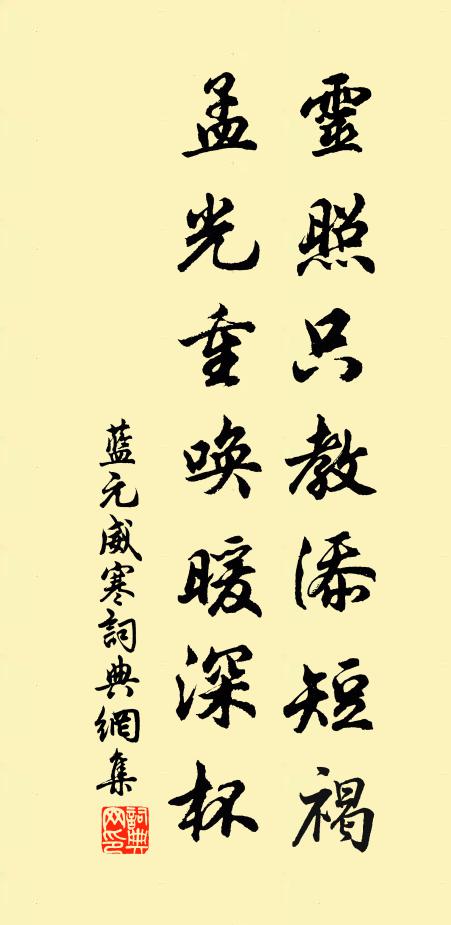 靈照只教添短褐
孟光重喚暖深杯
藍元威寒詞典網集
詞典網印